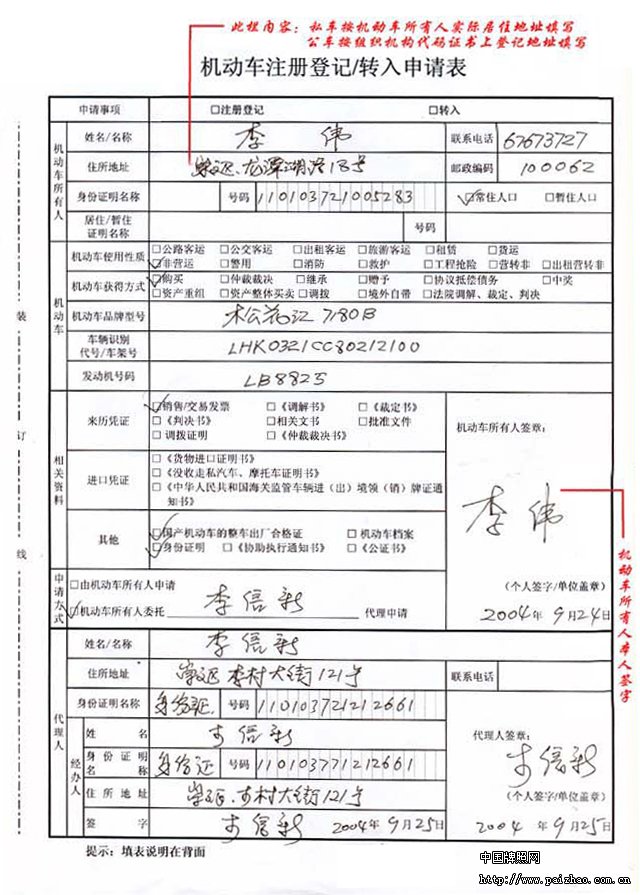 此栏内容：私车按机动车所有人实际居住地址填写
公车按组织机构代码证书上登记地址填写
机动车注册登记/转入申请表
申请事项 □注册登记 □转入
机动车所有人
姓名/名称 李伟 联系电话 67673727
住所地址 崇文区龙潭湖路18号 邮政编码 100062
身份证明名称 号码 110103721005283 ☑常住人口 □暂住人口
居住/暂住
证明名称 号码
机动车
机动车使用性质 □公路客运 □公交客运 □出租客运 □旅游客运 □租赁 □货运
☑非营运 □警用 □消防 □救护 □工程抢险 □营转非 □出租营转非
机动车获得方式 ☑购买 □仲裁裁决 □继承 □赠予 □协议抵偿债务 □中奖
□资产重组 □资产整体买卖 □调拨 □境外自带 □法院调解、裁定、判决
机动车品牌型号 松花江7180B
车辆识别
代号/车架号 LHK0321CC80212100
发动机号码 LB8825
相关资料
来历凭证 ☑销售/交易发票 □《调解书》 □《裁定书》
□《判决书》 □相关文书 □批准文件
□调拨证明 □《仲裁裁决书》
进口凭证 □《货物进口证明书》
□《没收走私汽车、摩托车证明书》
□《中华人民共和国海关监管车辆进（出）境领（销）牌证通
知书》
其他 ☑国产机动车的整车出厂合格证 □机动车档案
☑身份证明 □《协助执行通知书》 □《公证书》
机动车所有人签章：
李伟
(个人签字/单位盖章)
2004年9月24日
机动车所有人本人签字
申请方式
□由机动车所有人申请
☑机动车所有人委托 李信新 代理申请
代理人
姓名/名称 李信新
住所地址 李村大街121号 联系电话
身份证明名称 身份证 号码 110103721212661
经办人
姓名 李信新
身份证明
名称 身份证 号码 110103771212661
住所地址 李村大街121号
签字 李信新 2004年9月25日
代理人签章：
李信新
(个人签字/单位盖章)
2004年9月25日
装
订
线
提示：填表说明在背面
中国牌照网
http://www.paizhao.com.cn/